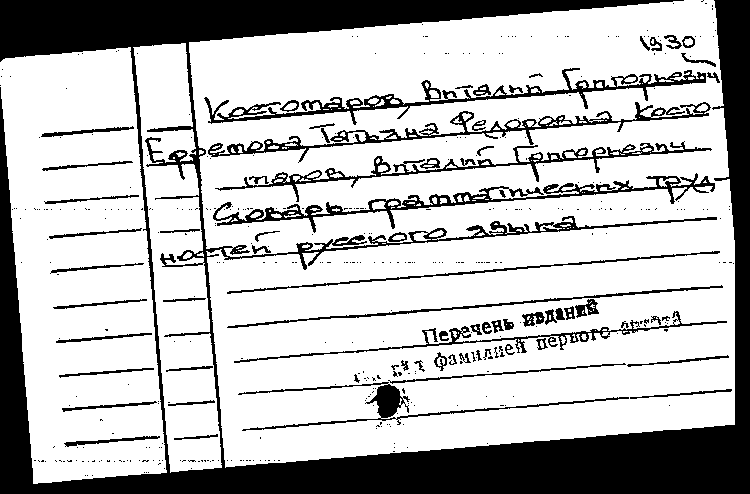 1930
Костомаров, Виталий Григорьевич
Ефремова, Татьяна Федоровна, Косто-
маров, Виталий Григорьевич.
Словарь грамматических труд-
ностей русского языка.
Перечень изданий
фамилией первого автора